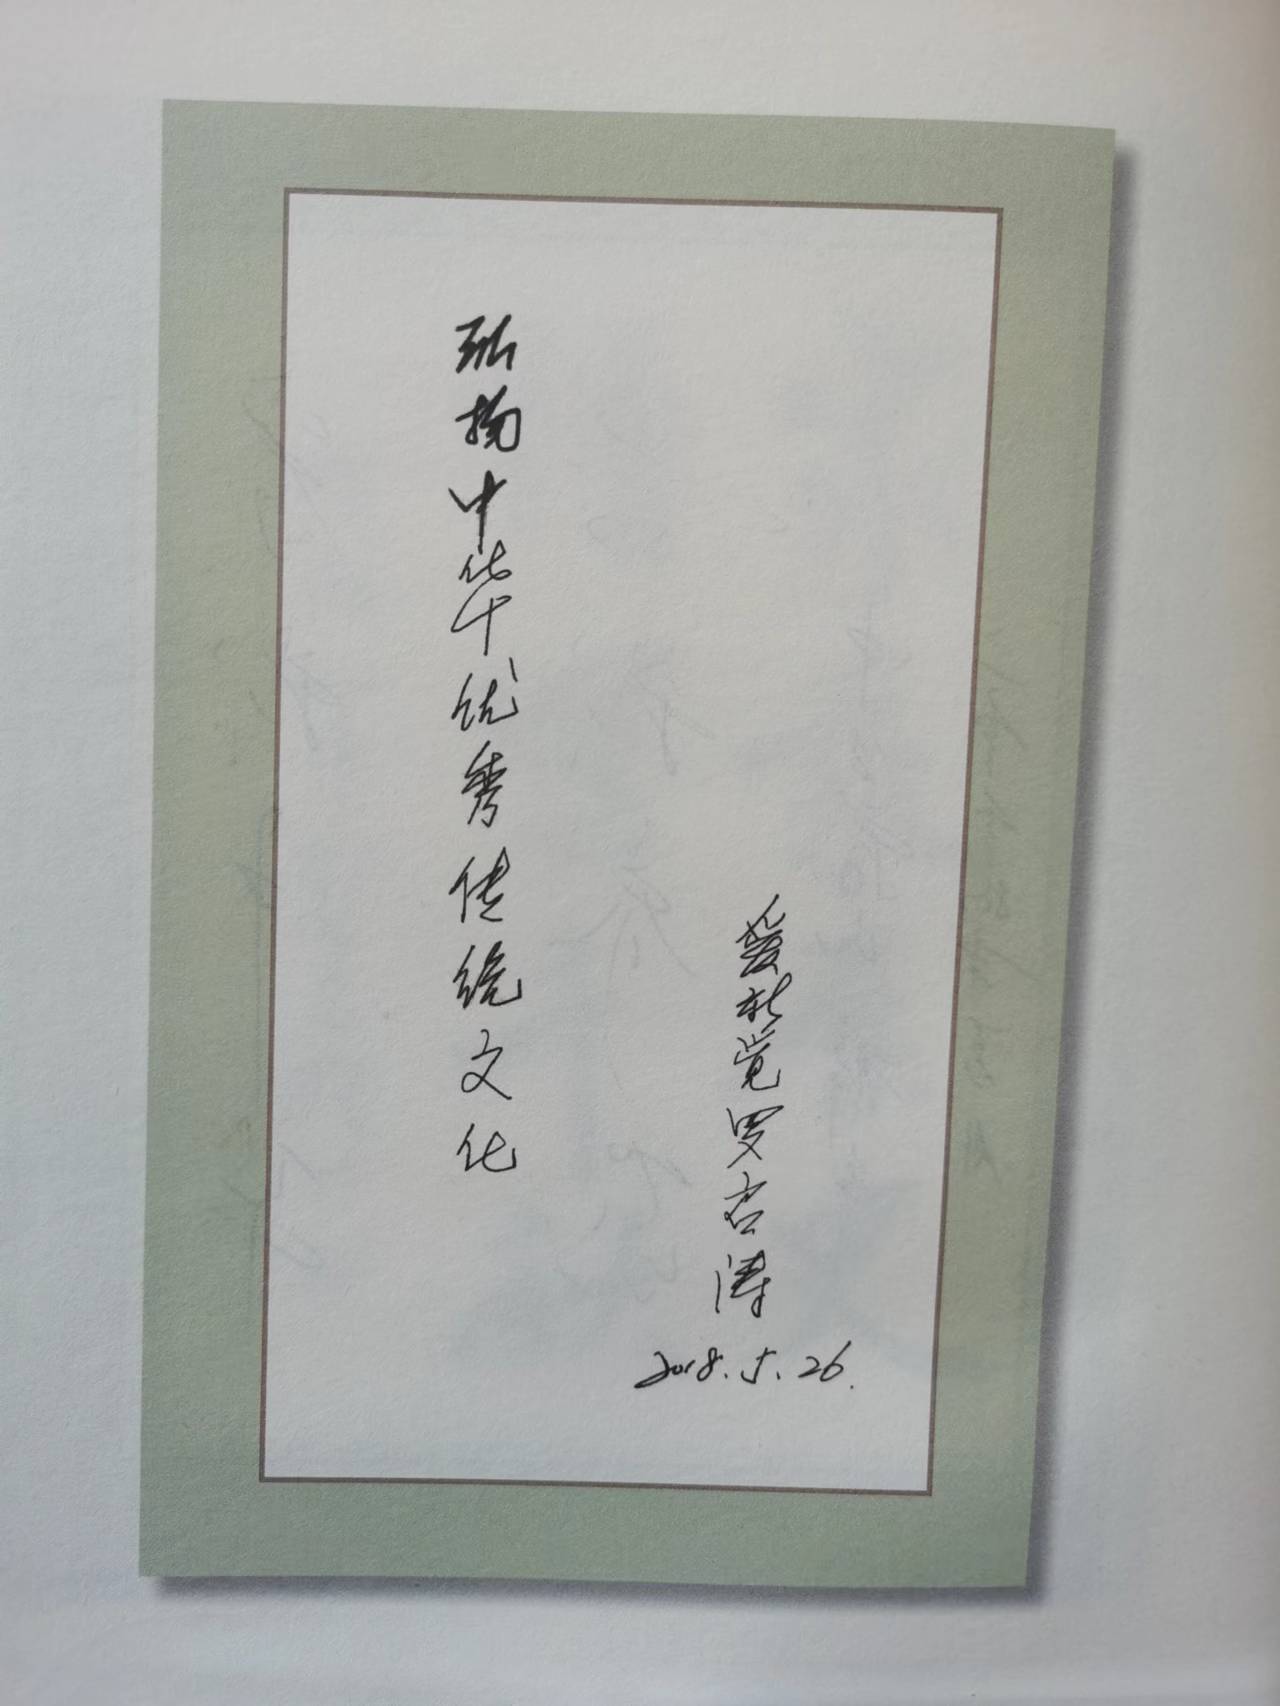 弘扬中华优秀传统文化
爱新觉罗启涛
2018.5.26.